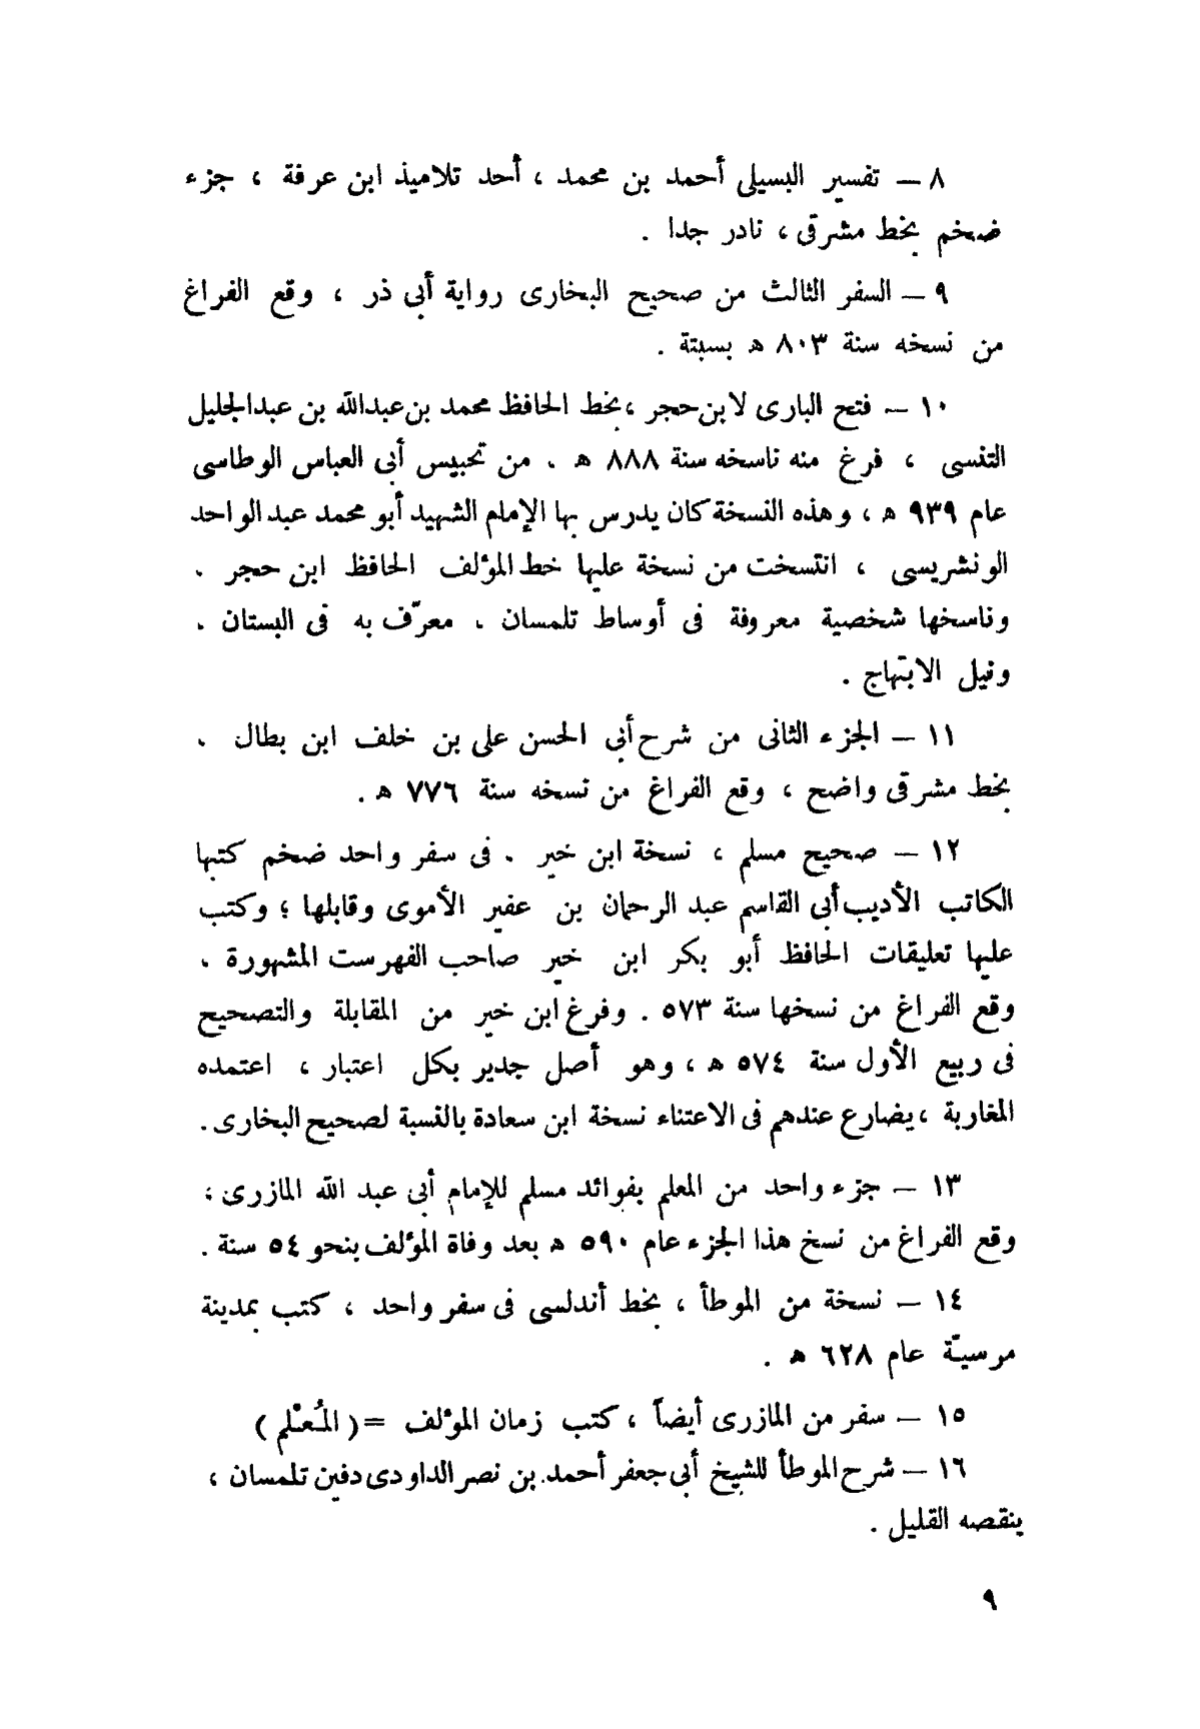 ٨ — تفسير البسيلى أحمد بن محمد ، أحد تلاميذ ابن عرفة ، جزء
ضخم بخط مشرقى ، نادر جدا .
٩ — السفر الثالث من صحيح البخارى رواية أبى ذر ، وقع الفراغ
من نسخه سنة ٨٠٣ ه بسبتة .
١٠ — فتح البارى لابن حجر ، بخط الحافظ محمد بن عبدالله بن عبدالجليل
التنسى ، فرغ منه ناسخه سنة ٨٨٨ ه . من تحبيس أبى العباس الوطاسى
عام ٩٣٩ ه ، وهذه النسخة كان يدرس بها الإمام الشهيد أبو محمد عبد الواحد
الونشريسى ، انتسخت من نسخة عليها خط المؤلف الحافظ ابن حجر .
وناسخها شخصية معروفة فى أوساط تلمسان . معرّف به فى البستان .
ونيل الابتهاج .
١١ — الجزء الثانى من شرح أبى الحسن على بن خلف ابن بطال .
بخط مشرقى واضح ، وقع الفراغ من نسخه سنة ٧٧٦ ه .
١٢ — صحيح مسلم ، نسخة ابن خير . فى سفر واحد ضخم كتبها
الكاتب الأديب أبى القاسم عبد الرحمان بن عفير الأموى وقابلها ؛ وكتب
عليها تعليقات الحافظ أبو بكر ابن خير صاحب الفهرست المشهورة .
وقع الفراغ من نسخها سنة ٥٧٣ . وفرغ ابن خير من المقابلة والتصحيح
فى ربيع الأول سنة ٥٧٤ ه ، وهو أصل جدير بكل اعتبار ، اعتمده
المغاربة ، يضارع عندهم فى الاعتناء نسخة ابن سعادة بالنسبة لصحيح البخارى .
١٣ — جزء واحد من المعلم بفوائد مسلم للإمام أبى عبد الله المازرى ؛
وقع الفراغ من نسخ هذا الجزء عام ٥٩٠ ه بعد وفاة المؤلف بنحو ٥٤ سنة .
١٤ — نسخة من الموطأ ، بخط أندلسى فى سفر واحد ، كتب بمدينة
مرسيّة عام ٦٢٨ ه .
١٥ — سفر من المازرى أيضاً ، كتب زمان المؤلف = ( المُعْلم )
١٦ — شرح الموطأ للشيخ أبى جعفر أحمد بن نصر الداودى دفين تلمسان ،
ينقصه القليل .
٩